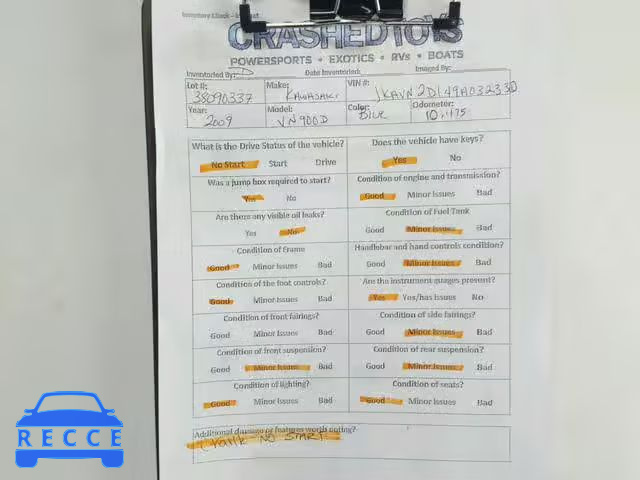 Inventory Check
CRASHEDTOYS
POWERSPORTS • EXOTICS • RVs • BOATS
Inventoried By: Date Inventoried: Imaged By:
Lot #: 38090337 Make: Kawasaki VIN #: JKAVN2D149A032330
Year: 2009 Model: VN900D Color: Blue Odometer: 10,475
What is the Drive Status of the vehicle? Does the vehicle have keys?
No Start Start Drive Yes No
Was a jump box required to start? Condition of engine and transmission?
Yes No Good Minor Issues Bad
Are there any visible oil leaks? Condition of Fuel Tank
Yes No Good Minor Issues Bad
Condition of Frame Handlebar and hand controls condition?
Good Minor Issues Bad Good Minor Issues Bad
Condition of the foot controls? Are the instrument guages present?
Good Minor Issues Bad Yes Yes/has Issues No
Condition of front fairings? Condition of side fairings?
Good Minor Issues Bad Good Minor Issues Bad
Condition of front suspension? Condition of rear suspension?
Good Minor Issues Bad Good Minor Issues Bad
Condition of lighting? Condition of seats?
Good Minor Issues Bad Good Minor Issues Bad
Additional damage or features worth noting?
Crank NO START
RECCE